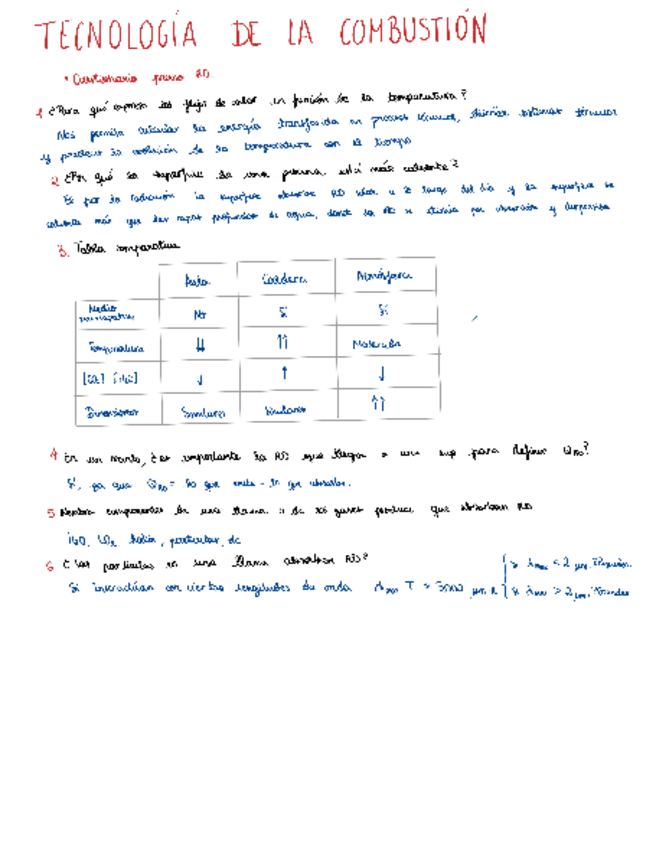 TECNOLOGÍA DE LA COMBUSTIÓN
• Cuestionario previo RD.
1 ¿Para qué expresar los flujos de calor en función de la temperatura?
Nos permite calcular la energía transferida en procesos térmicos, diseñar sistemas térmicos
y predecir la evolución de la temperatura con el tiempo
2 ¿Por qué la superficie de una piscina está más caliente?
Es por la radiación la superficie absorbe RD solar a lo largo del día y la superficie se
calienta más que las capas profundas de agua, donde la RD se atenúa por absorción y dispersión
3. Tabla comparativa
Auto Caldera Atmósfera
Medio participativo No Sí Sí
Temperatura ↓↓ ↑↑ Moderada
↓ ↑ ↓
Dimensiones Similares Similares ↑↑
4 En un horno, ¿es importante la RD que llega a una sup para definir Q_RD?
Sí, ya que Q_RD = lo que emite - lo que absorbe.
5 Nombra componentes de una llama o de los gases producto que absorban RD
H2O, CO2, hollín, partículas, etc
6 ¿Las partículas en una llama absorben RD?
Sí interactúan con ciertas longitudes de onda λmax T = μm K